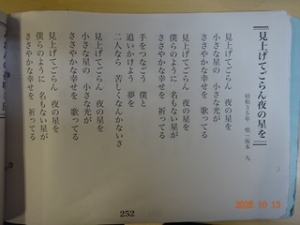 見上げてごらん夜の星を
昭和38年 唄・坂本 九
見上げてごらん 夜の星を
小さな星の 小さな光が
ささやかな幸せを 歌ってる
見上げてごらん 夜の星を
僕らのように 名もない星が
ささやかな幸せを 祈ってる
手をつなごう 僕と
追いかけよう 夢を
二人なら 苦しくなんかないさ
見上げてごらん 夜の星を
小さな星の 小さな光が
ささやかな幸せを 歌ってる
見上げてごらん 夜の星を
僕らのように 名もない星が
ささやかな幸せを 祈ってる
252